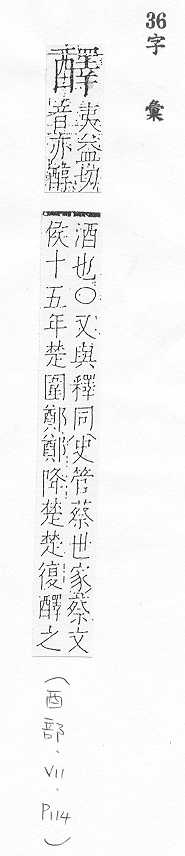 36
字彙
醳
夷益切
音亦醇
酒也〇又與釋同史管蔡世家蔡文
侯十五年楚圍鄭鄭降楚楚復醳之
(酉部.VII.P114)